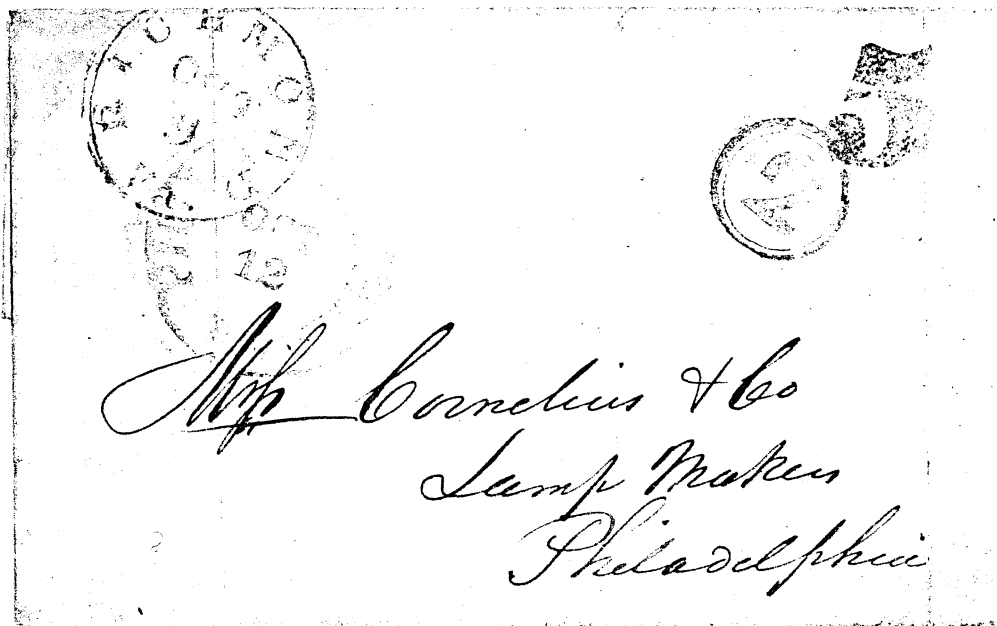 RICHMOND Va.
5
12
Mess Cornelius & Co
Lamp Makers
Philadelphia